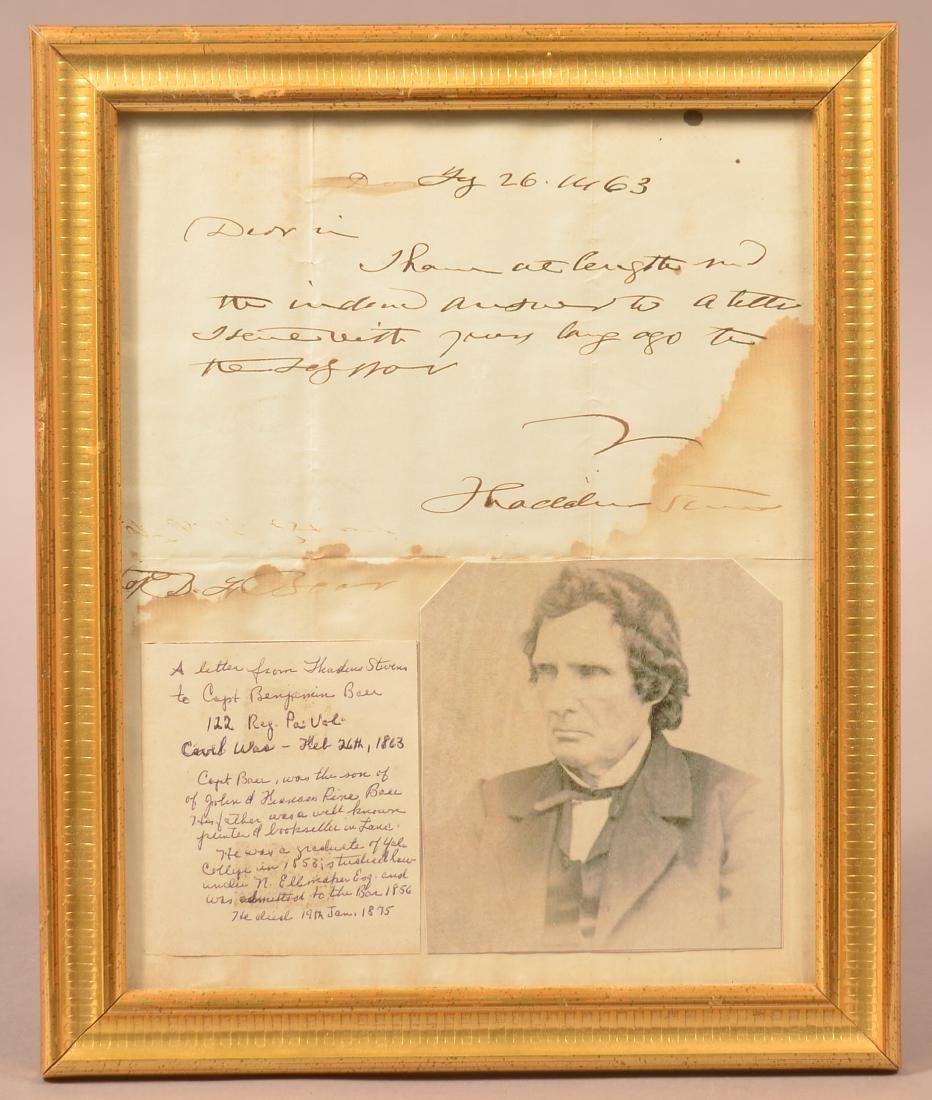 26. 1863
Dear Sir
I have at length recd
the inclosed answer to a letter
I sent with yours long ago to
the Sec of War
Thaddeus Stevens
A letter from Thadeus Stevens
to Capt Benjamin Baer
122 Reg. Pa. Vol.
Civil War - Feb 26th, 1863
Capt Baer, was the son of
of John & Rine Baer
His father was a well known
printer & bookseller in Lanc.
He was a graduate of Yale
College in 1853; studied law
under N. Ellmaker Esq. and
was admitted to the Bar 1856
He died 19th Jan. 1875